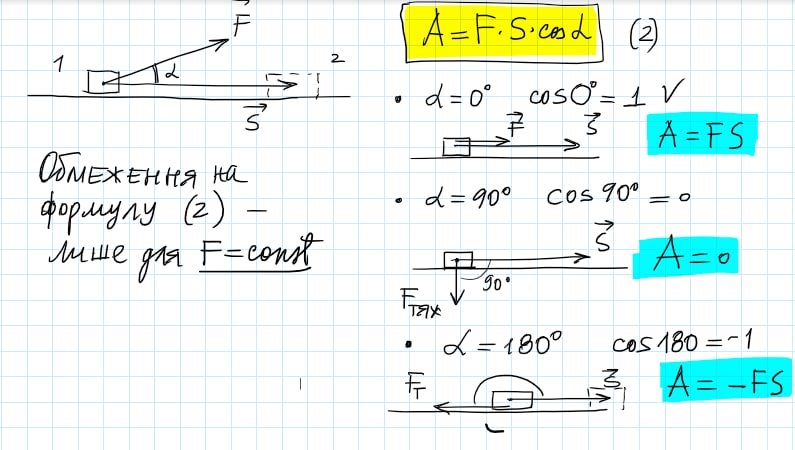 F
1
2
α
S
Обмеження на
формулу (2) —
лише для F=const
A=F·S·cosα (2)
• α=0° cos0°=1 V
F S
A=FS
• α=90° cos90°=0
S
A=0
90°
Fтяж
• α=180° cos180=-1
Fт S
A=-FS